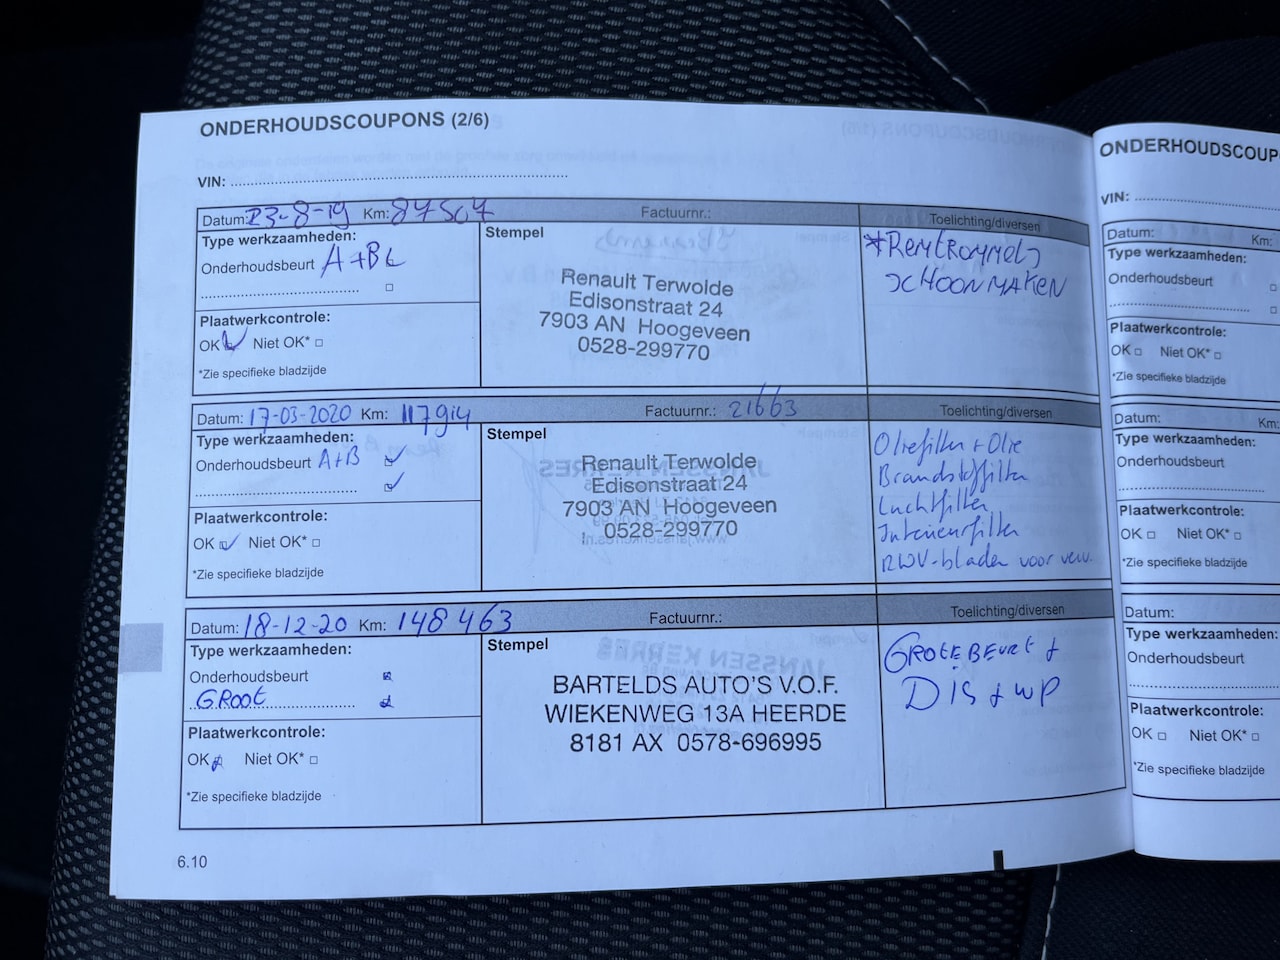 ONDERHOUDSCOUPONS (2/6)
VIN:
Datum: 23-8-19 Km: 87507 Factuurnr.: Toelichting/diversen
Type werkzaamheden:
Onderhoudsbeurt A+B
Stempel
Renault Terwolde
Edisonstraat 24
7903 AN Hoogeveen
0528-299770
*REMTROMMELS
SCHOONMAKEN
Plaatwerkcontrole:
OK Niet OK*
*Zie specifieke bladzijde
Datum: 17-03-2020 Km: 117914 Factuurnr.: 21663 Toelichting/diversen
Type werkzaamheden:
Onderhoudsbeurt A+B
Stempel
Renault Terwolde
Edisonstraat 24
7903 AN Hoogeveen
0528-299770
Oliefilter + Olie
Brandstoffilter
Luchtfilter
Interieurfilter
RWV-bladen voor verv.
Plaatwerkcontrole:
OK Niet OK*
*Zie specifieke bladzijde
Datum: 18-12-20 Km: 148463 Factuurnr.: Toelichting/diversen
Type werkzaamheden:
Onderhoudsbeurt
GROOT
Stempel
BARTELDS AUTO'S V.O.F.
WIEKENWEG 13A HEERDE
8181 AX 0578-696995
GROTE BEURT +
DIS + WP
Plaatwerkcontrole:
OK Niet OK*
*Zie specifieke bladzijde
6.10
ONDERHOUDSCOUP
VIN:
Datum: Km:
Type werkzaamheden:
Onderhoudsbeurt
Plaatwerkcontrole:
OK Niet OK*
*Zie specifieke bladzijde
Datum: Km:
Type werkzaamheden:
Onderhoudsbeurt
Plaatwerkcontrole:
OK Niet OK*
*Zie specifieke bladzijde
Datum:
Type werkzaamheden:
Onderhoudsbeurt
Plaatwerkcontrole:
OK Niet OK*
*Zie specifieke bladzijde